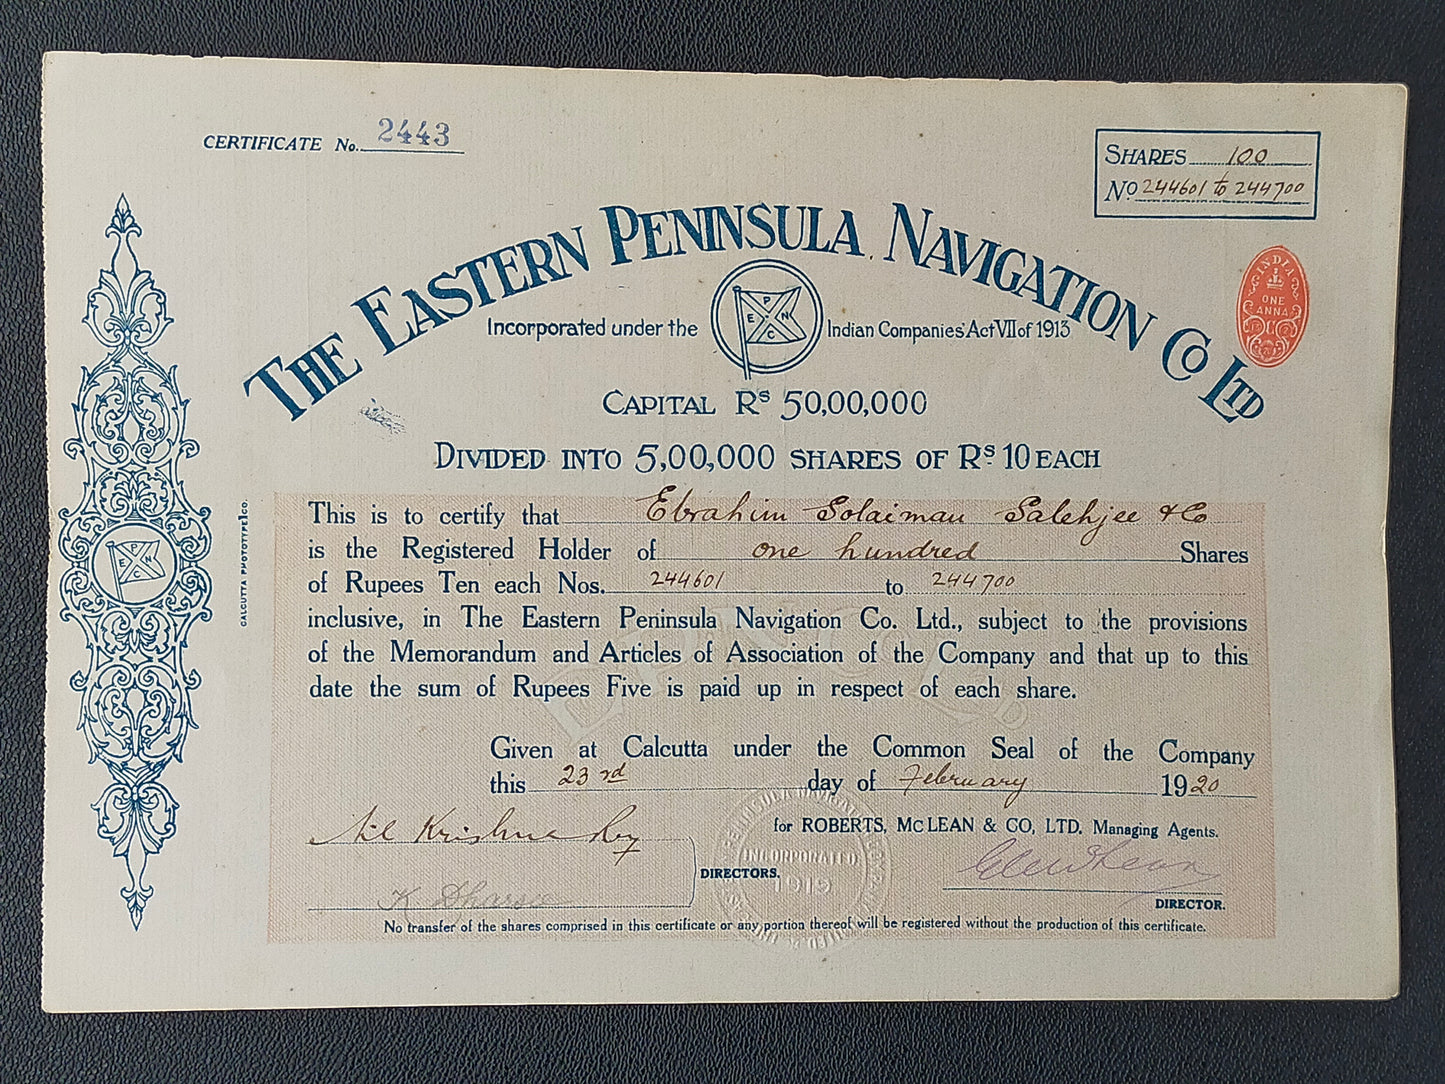 CERTIFICATE No. 2443
SHARES 100
No 244601 to 244700
THE EASTERN PENINSULA NAVIGATION CO LTD
INDIA
ONE
ANNA
P
E N
C
Incorporated under the Indian Companies' Act VII of 1913
CAPITAL Rs 50,00,000
DIVIDED INTO 5,00,000 SHARES OF Rs 10 EACH
This is to certify that Ebrahim Solaiman Salehjee & Co
is the Registered Holder of one hundred Shares
of Rupees Ten each Nos. 244601 to 244700
inclusive, in The Eastern Peninsula Navigation Co. Ltd., subject to the provisions
of the Memorandum and Articles of Association of the Company and that up to this
date the sum of Rupees Five is paid up in respect of each share.
P
E N
C
CALCUTTA PHOTOTYPE CO.
Given at Calcutta under the Common Seal of the Company
this 23rd day of February 1920
for ROBERTS, McLEAN & CO, LTD. Managing Agents.
INCORPORATED
1919
DIRECTORS.
K Dharsee
DIRECTOR.
No transfer of the shares comprised in this certificate or any portion thereof will be registered without the production of this certificate.